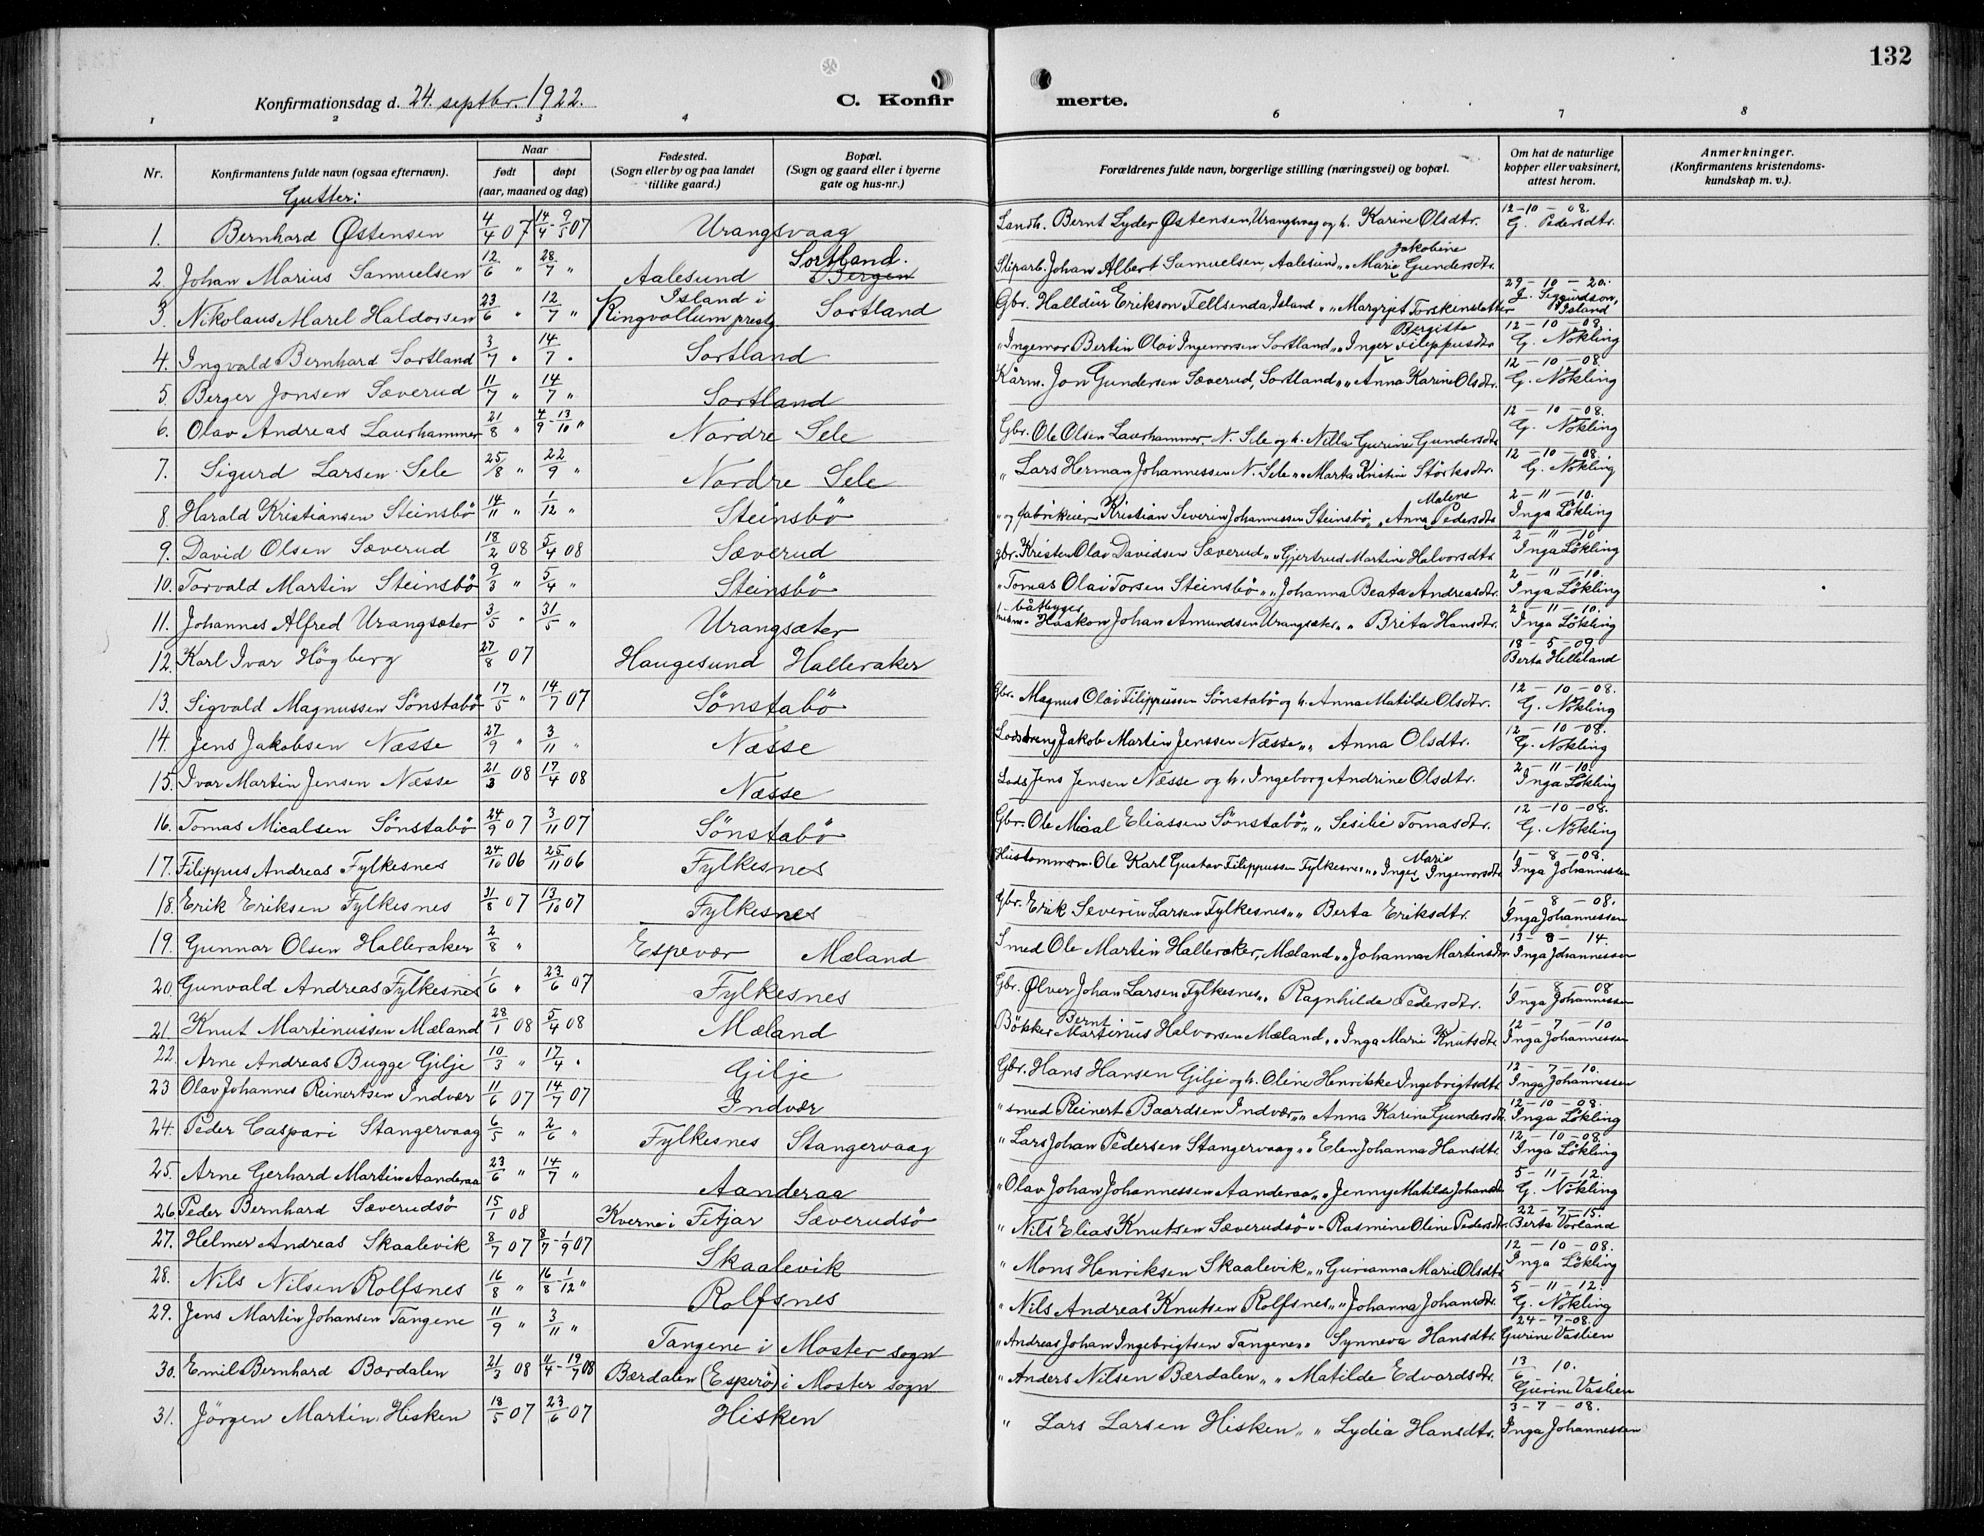 132
Konfirmationsdag d. 24. septbr. 1922.
C. Konfirmerte.
1 2 3 4 6 7 8
Nr. Konfirmantens fulde navn (ogsaa efternavn). Naar født døpt (aar, maaned og dag) Fødested. (Sogn eller by og paa landet tillike gaard.) Bopæl. (Sogn og gaard eller i byerne gate og hus-nr.) Forældrenes fulde navn, borgerlige stilling (næringsvei) og bopæl. Om hat de naturlige kopper eller vaksinert, attest herom. Anmerkninger. (Konfirmantens kristendomskundskap m. v.).
Gutter:
1. Bernhard Østensen 4/4 07 14/4 - 9/5 07 Urangsvaag Landh. Bernt Lyder Østensen, Urangsvaag og h. Karine Olsdtr. 12-10-08. G. Pedersdtr.
2. Johan Marius Samuelsen 12/6 " 28/7 " Aalesund Sortland. Bergen Sliparb. Johan Albert Samuelsen, Aalesund " " Marie Jakobine Gundersdtr.
3. Nikolaus Marel Haldorsen 23/6 " 12/7 " Island i Ringvollum prestg Sortland Gbr. Halldür Erikson Fellsenda, Island " Margrjet Torskinsletter 29-10-20. J. Sigurdson, Island
4. Ingvald Bernhard Sortland 3/7 " 14/7 " Sortland " Ingemar Bertin Olai Ingemorsen Sortland " " Inger Bergitte Filippusdtr 12-10-08. G. Nökling
5. Berger Jonsen Sæverud 11/7 " 14/7 " Sortland Kårm. Jon Gundersen Sæverud, Sortland " " Anna Karine Olsdtr. 12-10-08 G. Nökling
6. Olav Andreas Laurhammer 21/8 " 4/9 - 13/10 " Nordre Sele Gbr. Ole Olsen Laurhammer N. Sele og h. Nilla Gurine Gundersdtr 12-10-08. G. Nökling
7. Sigurd Larsen Sele 25/8 " 22/9 " Nordre Sele " Lars Herman Johannessen N. Sele " " Marta Kristine Störksdtr. 12-10-08. G. Nökling
8. Harald Kristiansen Steinsbö 14/11 " 1/12 " Steinsbö " og fabrikeier Kristian Severin Johannessen Steinsbö " " Anna Malene Pedersdtr 2-11-10. Inga Lökling
9. David Olsen Sæverud 18/2 08 5/4 08 Sæverud gbr. Kristen Olav Davidsen Sæverud " " Gjertrud Martine Halvorsdtr 2-11-10. Inga Lökling
10. Torvald Martin Steinsbö 9/3 " 5/4 " Steinsbö " Tomas Olai Torsen Steinsbö " " Johanna Beata Andreasdtr 2-11-10. Inga Lökling
11. Johannes Alfred Urangsæter 3/5 " 31/5 " Urangsæter båtbygger Haakon Johan Amundsen Urangsæter " " Brita Hansdtr. 2-11-10. Inga Lökling
12. Karl Ivar Högberg 27/8 07 Haugesund Halleraker 18-5-09 Berta Helleland
13. Sigvald Magnussen Sönstabö 17/5 " 14/7 07 Sönstabö Gbr. Magnus Olai Filippussen Sönstabö og h. Anna Matilde Olsdtr. 12-10-08. G. Nökling
14. Jens Jakobsen Næsse 27/9 " 3/11 " Næsse Lodsdreng Jakob Martin Jenssen Næsse " " Anna Olsdtr. 12-10-08. G. Nökling
15. Ivar Martin Jensen Næsse 21/3 08 17/4 08 Næsse Lods Jens Jensen Næsse og h. Ingeborg Andrine Olsdtr. 2-11-10. Inga Lökling
16. Tomas Micalsen Sönstabö 24/9 07 3/11 07 Sönstabö Gbr. Ole Mical Eliassen Sönstabö " " Sesilie Tomasdtr. 12-10-08. G. Nökling
17. Filippus Andreas Fylkesnes 24/10 06 25/11 06 Fylkesnes Hustömmerm. Ole Karl Gustav Filippussen Fylkesnes " " Inger Marie Ingemorsdtr 1-8-08. Inga Johannessen
18. Erik Eriksen Fylkesnes 31/8 07 13/10 07 Fylkesnes Gbr. Erik Severin Larsen Fylkesnes " " Berta Eriksdtr. 1-8-08. Inga Johannessen
19. Gunnar Olsen Halleraker 2/8 " Espevær Mæland Smed Ole Martin Halleraker, Mæland " " Johanna Martinsdtr 13-8-14. Inga Johannessen
20. Gunvald Andreas Fylkesnes 1/6 " 23/6 07 Fylkesnes Gbr. Ølver Johan Larsen Fylkesnes " " Ragnhilde Pedersdtr. 1-8-08 Inga Johannessen
21. Knut Martinussen Mæland 28/1 08 5/4 08 Mæland Bökker Bernt Martinus Halvorsen Mæland " " Inga Marie Knutsdtr 12-7-10 Inga Johannessen
22. Arne Andreas Bugge Gilje 10/3 " 17/4 " Gilje Gbr. Hans Hansen Gilje og h. Oline Henrikke Ingebrigtsdtr 12-7-10. Inga Johannessen
23 Olav Johannes Reinertsen Indvær 11/6 07 14/7 07 Indvær " smed Reinert Baardsen Indvær " " Anna Karine Gundersdtr 12-10-08. Inga Lökling
24. Peder Caspari Stangervaag 6/5 " 2/6 " Fylkesnes Stangervaag " Lars Johan Pedersen Stangervaag " " Elen Johanna Hansdtr 12-10-08. Inga Lökling
25. Arne Gerhard Martin Aanderaa 23/6 " 14/7 " Aanderaa " Olav Johan Johannessen Aanderaa " " Jenny Matilde Johansdtr 5-11-12. G. Nökling
26. Peder Bernhard Sæverudsö 15/1 08 Kverne i Fitjar Sæverudsö " Nils Elias Knutsen Sæverudsö " " Rasmine Oline Pedersdtr. 22-7-15. Berta Vorland
27. Helmer Andreas Skaalevik 8/7 07 8/7 - 1/9 07 Skaalevik " Mons Henriksen Skaalevik " " Gurianna Marie Olsdtr 12-10-08. Inga Lökling
28. Nils Nilsen Rolfsnes 16/8 " 16/8 - 1/12 " Rolfsnes " Nils Andreas Knutsen Rolfsnes " " Johanna Johansdtr. 5-11-12. G. Nökling
29. Jens Martin Johansen Tangene 11/9 " 3/11 " Tangene i Moster sogn " Andreas Johan Ingebrigtsen Tangene " " Synneva Hansdtr. 24-7-08. Gurine Vaslien
30. Emil Bernhard Bærdalen 21/3 08 11/4 - 19/7 08 Bærdalen (Esperö) i Moster sogn " Anders Nilsen Bærdalen " " Matilde Edvardsdtr. 13/6 10. Gurine Vaslien
31. Jörgen Martin Hisken 18/5 07 23/6 07 Hisken " Lars Larsen Hisken " " Lydia Hansdtr. 3-7-08. Inga Johannessen